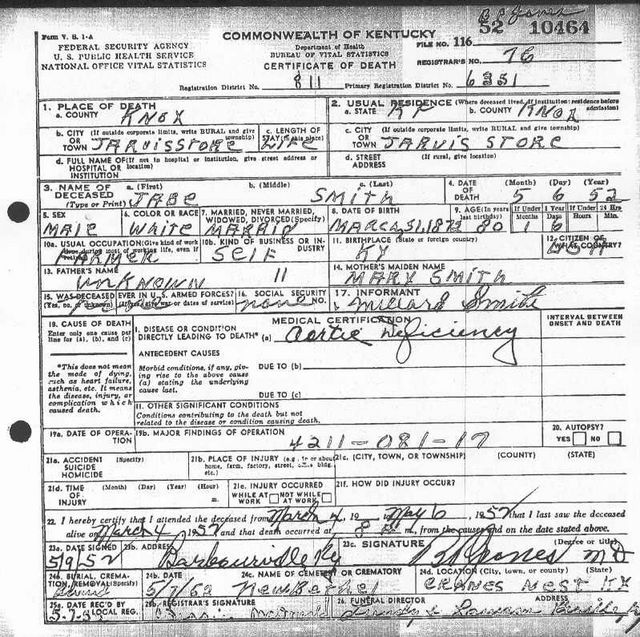 52 10464
Form V. S. 1-A
COMMONWEALTH OF KENTUCKY
FILE NO. 116
FEDERAL SECURITY AGENCY
U. S. PUBLIC HEALTH SERVICE
NATIONAL OFFICE VITAL STATISTICS
Department of Health
BUREAU OF VITAL STATISTICS
CERTIFICATE OF DEATH
REGISTRAR'S NO. 76
Registration District No. 811 Primary Registration District No. 6351
1. PLACE OF DEATH
a. COUNTY KNOX
2. USUAL RESIDENCE (Where deceased lived. If institution: residence before admission)
a. STATE KY b. COUNTY KNOX
b. CITY (If outside corporate limits, write RURAL and give township)
OR TOWN JARVISSTORE
c. LENGTH OF STAY (in this place) LIFE
c. CITY (If outside corporate limits, write RURAL and give township)
OR TOWN JARVIS STORE
d. FULL NAME OF (If not in hospital or institution, give street address or location)
HOSPITAL OR INSTITUTION
d. STREET ADDRESS (If rural, give location)
3. NAME OF DECEASED (Type or Print)
a. (First) b. (Middle) c. (Last)
JABE SMITH
4. DATE OF DEATH (Month) (Day) (Year)
5 6 52
5. SEX
MALE
6. COLOR OR RACE
WHITE
7. MARRIED, NEVER MARRIED, WIDOWED, DIVORCED (Specify)
MARRID
8. DATE OF BIRTH
MARCH 31, 1872
9. AGE (In years last birthday) If Under 1 Year If Under 24 Hrs
Months Days Hours Min.
80 1 6
10a. USUAL OCCUPATION (Give kind of work done during most of working life, even if retired)
FARMER
10b. KIND OF BUSINESS OR INDUSTRY
SELF
11. BIRTHPLACE (State or foreign country)
KY
12. CITIZEN OF WHAT COUNTRY?
USA
13. FATHER'S NAME
UNKNOWN 11
14. MOTHER'S MAIDEN NAME
MARY SMITH
15. WAS DECEASED EVER IN U. S. ARMED FORCES?
(Yes, no, or unknown) (If yes, give war or dates of service)
16. SOCIAL SECURITY NO.
none
17. INFORMANT
Millard Smith
18. CAUSE OF DEATH
Enter only one cause per line for (a), (b), and (c)
MEDICAL CERTIFICATION
INTERVAL BETWEEN ONSET AND DEATH
I. DISEASE OR CONDITION DIRECTLY LEADING TO DEATH* (a) Aortic Deficiency
*This does not mean the mode of dying, such as heart failure, asthenia, etc. It means the disease, injury, or complication which caused death.
ANTECEDENT CAUSES
Morbid conditions, if any, giving rise to the above cause (a) stating the underlying cause last.
DUE TO (b)
DUE TO (c)
II. OTHER SIGNIFICANT CONDITIONS
Conditions contributing to the death but not related to the disease or condition causing death.
19a. DATE OF OPERATION
19b. MAJOR FINDINGS OF OPERATION
4211-081-17
20. AUTOPSY?
YES NO
21a. ACCIDENT SUICIDE HOMICIDE (Specify)
21b. PLACE OF INJURY (e.g., in or about home, farm, factory, street, office bldg., etc.)
21c. (CITY, TOWN, OR TOWNSHIP) (COUNTY) (STATE)
21d. TIME OF INJURY (Month) (Day) (Year) (Hour) m.
21e. INJURY OCCURRED
WHILE AT WORK NOT WHILE AT WORK
21f. HOW DID INJURY OCCUR?
22. I hereby certify that I attended the deceased from March 4, 19 to May 6, 1952 that I last saw the deceased
alive on March 4, 1952 and that death occurred at 8 m., from the causes and on the date stated above.
23a. DATE SIGNED
5/9/52
23b. ADDRESS
Barbourville Ky
23c. SIGNATURE (Degree or title)
Jones MD
24a. BURIAL, CREMATION, REMOVAL (Specify)
Burial
24b. DATE
5/7/52
24c. NAME OF CEMETERY OR CREMATORY
New Bethel
24d. LOCATION (City, town, or county) (State)
CRANES NEST KY
25a. DATE REC'D BY LOCAL REG.
25b. REGISTRAR'S SIGNATURE
26. FUNERAL DIRECTOR ADDRESS